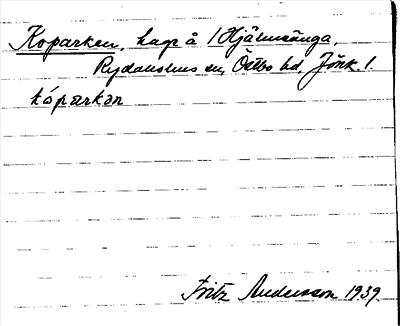 Koparken, hage å 1 Hjälmsänga,
Rydaholms sn, Östbo hd, Jönk. l.
kóparkan
Fritz Andersson 1939.